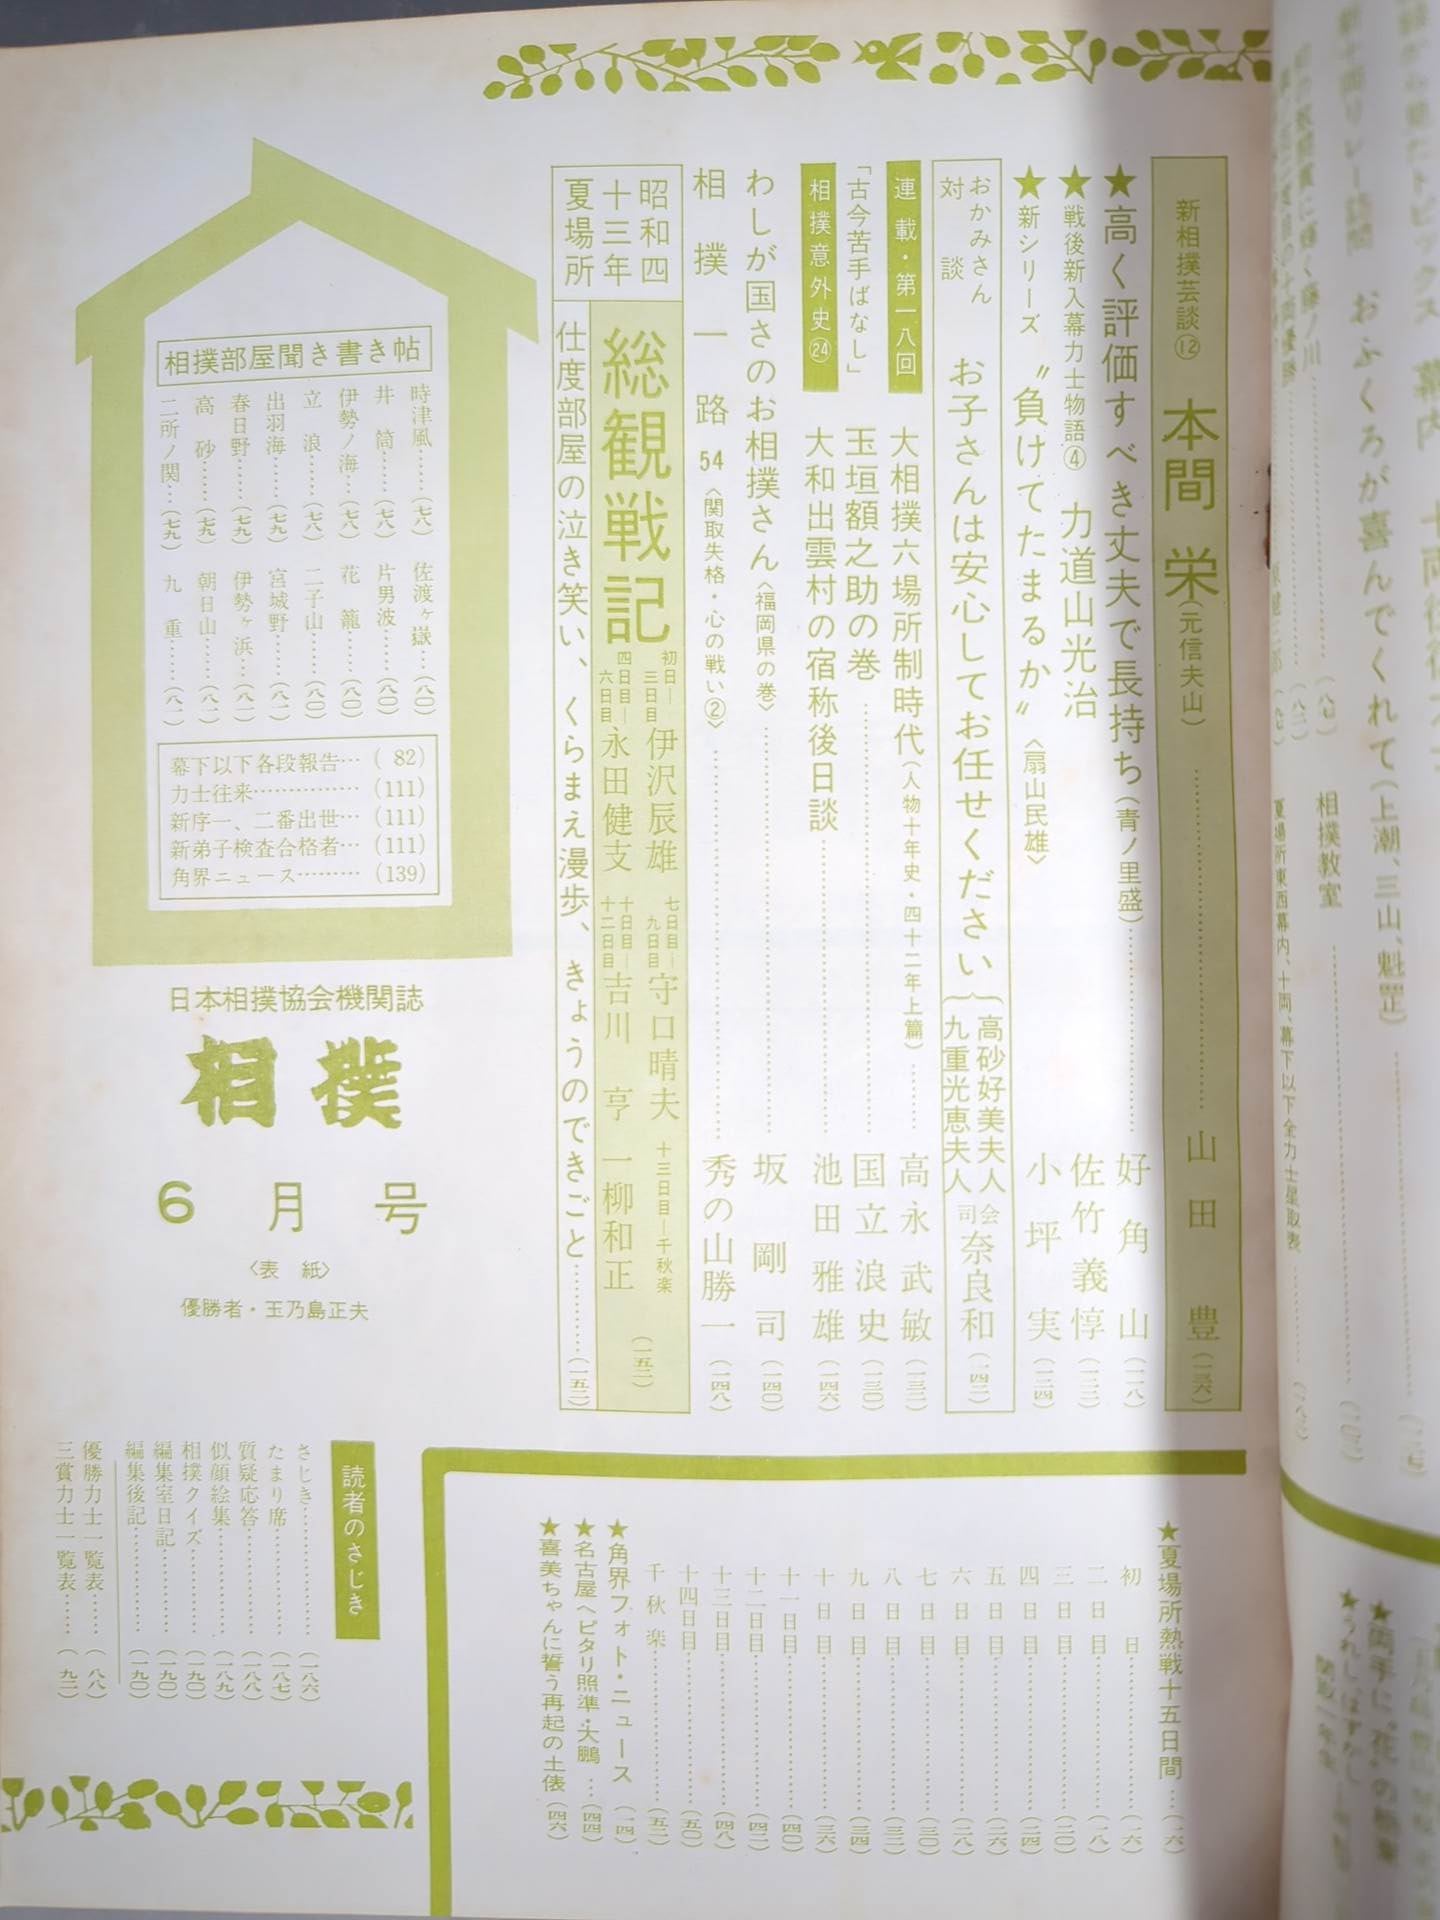 新相撲芸談⑫ 本間 栄(元信夫山)……山田 豊(一三六)
★高く評価すべき丈夫で長持ち(青ノ里盛)……好角山(一一八)
★戦後新入幕力士物語④ 力道山光治 佐竹義惇(一二二)
★新シリーズ 〝負けてたまるか〟〈扇山民雄〉 小坪 実(一二四)
おかみさん対談 お子さんは安心してお任せください
高砂好美夫人
九重光恵夫人
司会 奈良和(一四二)
連載・第一八回 大相撲六場所制時代(人物十年史・四十二年上篇)……高永武敏(一三二)
「古今苦手ばなし」 玉垣額之助の巻……国立浪史(一三〇)
相撲意外史㉔ 大和出雲村の宿称後日談……池田雅雄(一四六)
わしが国さのお相撲さん〈福岡県の巻〉……坂 剛司(一四〇)
相撲一路 54〈関取失格・心の戦い②〉……秀の山勝一(一四八)
昭和四十三年夏場所
総観戦記
初日―三日目 伊沢辰雄
四日目―六日目 永田健支
七日目―九日目 守口晴夫
十日目―十二日目 吉川 亨
十三日目―千秋楽 一柳和正
(一五二)
仕度部屋の泣き笑い、くらまえ漫歩、きょうのできごと……(一五二)
相撲部屋聞き書き帖
時津風……(七八)
井筒……(七八)
伊勢ノ海…(七八)
立浪……(七八)
出羽海……(七九)
春日野……(七九)
高砂……(七九)
二所ノ関…(七九)
佐渡ヶ嶽…(八〇)
片男波……(八〇)
花籠……(八〇)
二子山……(八〇)
宮城野……(八一)
伊勢ヶ浜…(八一)
朝日山……(八一)
九重……(八一)
幕下以下各段報告…(82)
力士往来……………(111)
新序一、二番出世…(111)
新弟子検査合格者…(111)
角界ニュース………(139)
日本相撲協会機関誌
相撲
6月号
〈表紙〉
優勝者・玉乃島正夫
★夏場所熱戦十五日間…(一六)
初日……(一六)
二日目……(一八)
三日目……(二〇)
四日目……(二四)
五日目……(二六)
六日目……(二八)
七日目……(三〇)
八日目……(三二)
九日目……(三四)
十日目……(三六)
十一日目……(四〇)
十二日目……(四二)
十三日目……(四八)
十四日目……(五〇)
千秋楽……(五二)
★角界フォト・ニュース(一四)
★名古屋へピタリ照準・大鵬…(四四)
★喜美ちゃんに誓う再起の土俵(四六)
読者のさじき
さじき……(一八六)
たまり席……(一八七)
質疑応答……(一八八)
似顔絵集……(一八九)
相撲クイズ……(一九〇)
編集室日記……(一九〇)
編集後記……(一九〇)
優勝力士一覧表……(八八)
三賞力士一覧表……(九二)
おふくろが喜んでくれて(上潮、三山、魁罡)
相撲教室
夏場所東西幕内、十両、幕下以下全力士星取表